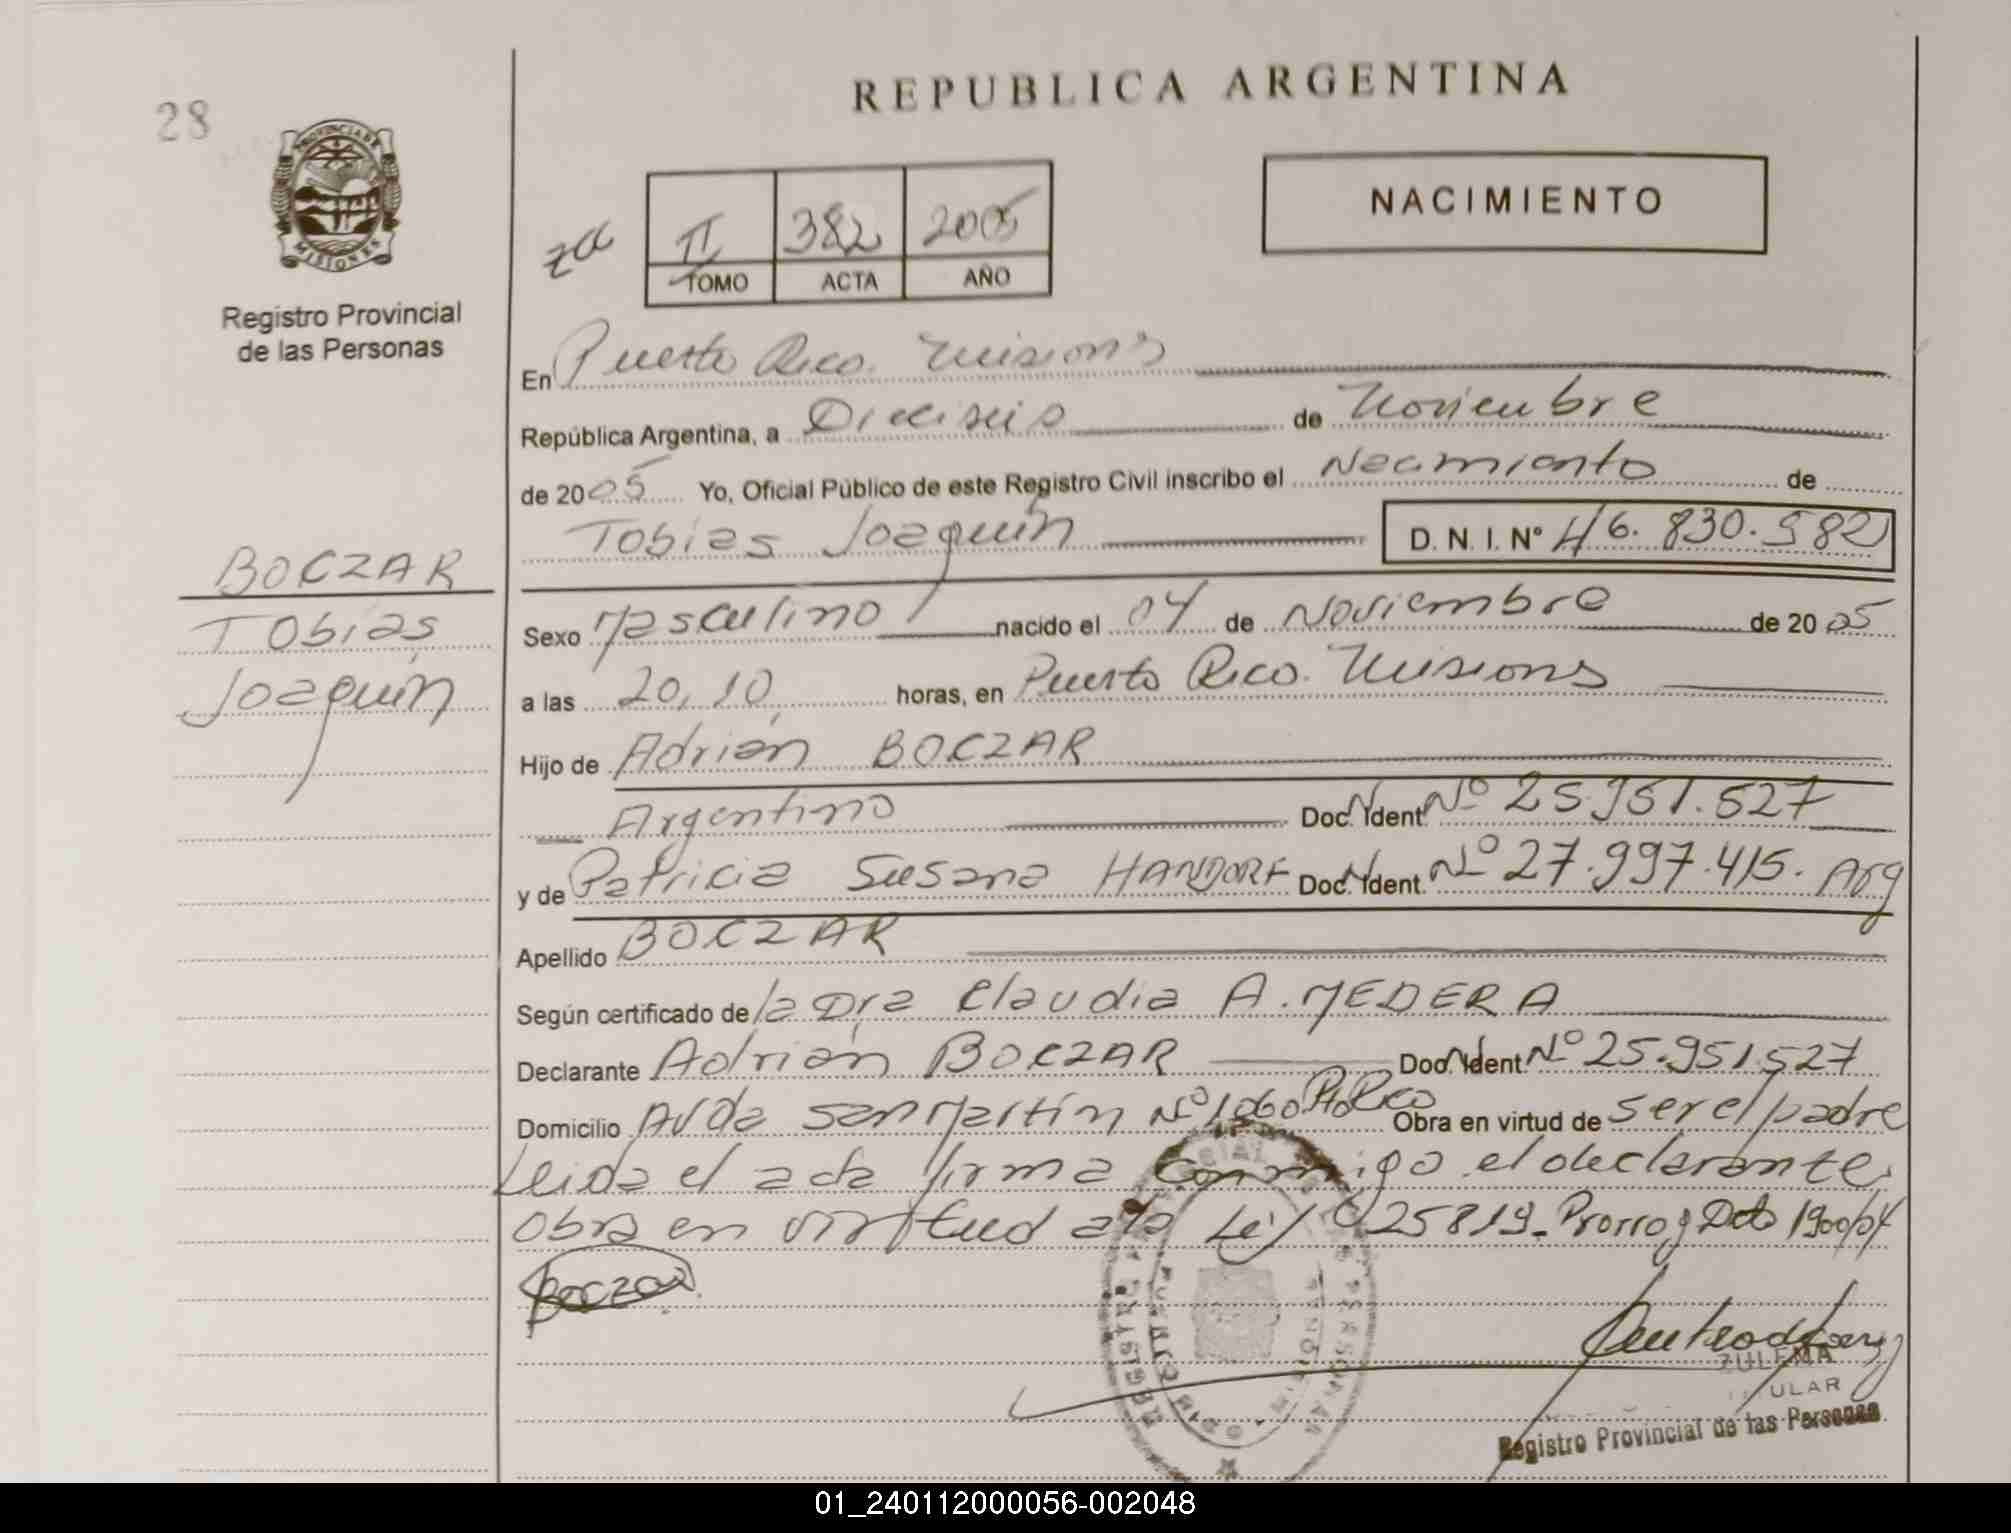 REPUBLICA ARGENTINA
28
PROVINCIA DE
MISIONES
Registro Provincial
de las Personas
NACIMIENTO
II 382 2005
TOMO ACTA AÑO
En Puerto Rico. Misiones
República Argentina, a Dieciseis de Noviembre
de 2005 Yo, Oficial Público de este Registro Civil inscribo el Nacimiento de
Tobias Joaquín D. N. I. Nº 46.830.582
BOCZAR
Tobias
Joaquín
Sexo Masculino nacido el 04 de Noviembre de 2005
a las 20,10, horas, en Puerto Rico. Misiones
Hijo de Adrián BOCZAR
Argentino Doc. Ident. Nº 25.951.527
y de Patricia Susana HANDORF Doc. Ident. Nº 27.997.415. Arg
Apellido BOCZAR
Según certificado de la Dra Claudia A. MEDERA
Declarante Adrián BOCZAR Doc. Ident. Nº 25.951.527
Domicilio Avda San Martín Nº 1060 Pto Rico Obra en virtud de ser el padre
Leida el acta firma conmigo el declarante
Obra en virtud a la Ley 25819_ Prorrog Dcto 1900/04
Boczar
ZULEMA
ULAR
Registro Provincial de las Personas
01_240112000056-002048